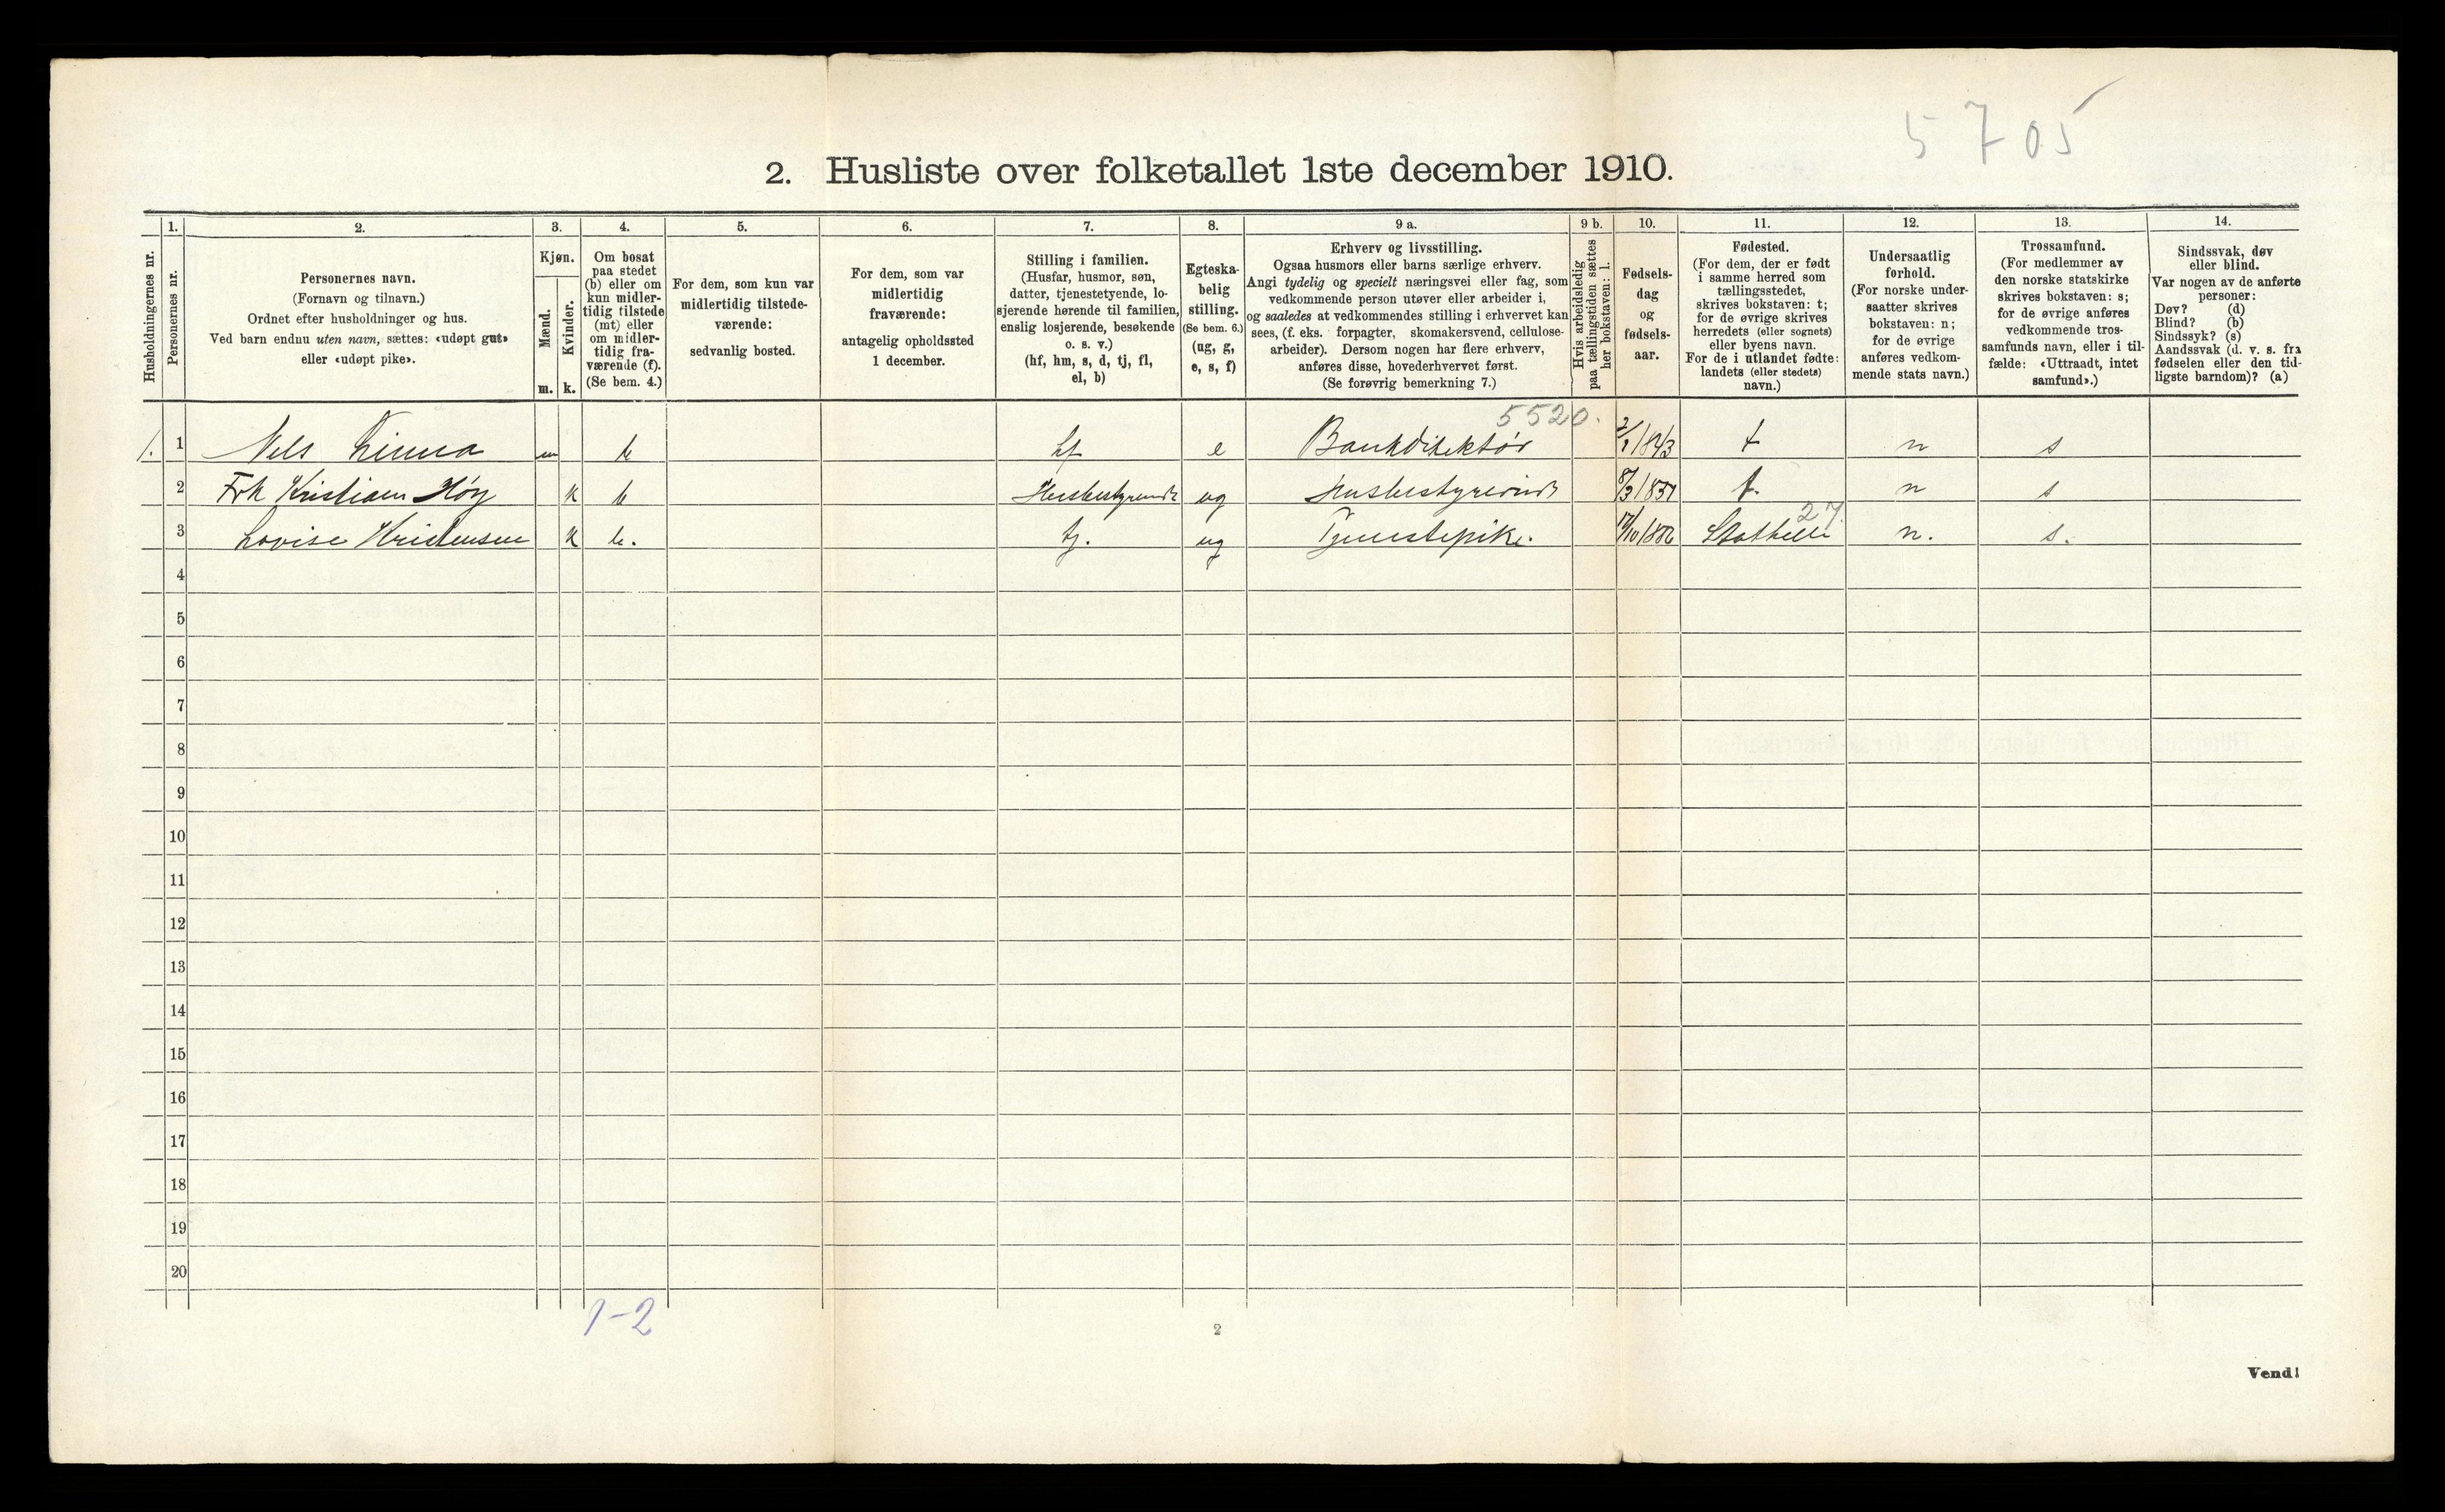 5705
2. Husliste over folketallet 1ste december 1910.
Husholdningernes nr.
1.
Personernes nr.
2.
Personernes navn.
(Fornavn og tilnavn.)
Ordnet efter husholdninger og hus.
Ved barn endnu uten navn, sættes: «udøpt gut»
eller «udøpt pike».
3.
Kjøn.
Mænd.
Kvinder.
m. k.
4.
Om bosat
paa stedet
(b) eller om
kun midler-
tidig tilstede
(mt) eller
om midler-
tidig fra-
værende (f).
(Se bem. 4.)
5.
For dem, som kun var
midlertidig tilstede-
værende:
sedvanlig bosted.
6.
For dem, som var
midlertidig
fraværende:
antagelig opholdssted
1 december.
7.
Stilling i familien.
(Husfar, husmor, søn,
datter, tjenestetyende, lo-
sjerende hørende til familien,
enslig losjerende, besøkende
o. s. v.)
(hf, hm, s, d, tj, fl,
el, b)
8.
Egteska-
belig
stilling.
(Se bem. 6.)
(ug, g,
e, s, f)
9 a.
Erhverv og livsstilling.
Ogsaa husmors eller barns særlige erhverv.
Angi tydelig og specielt næringsvei eller fag, som
vedkommende person utøver eller arbeider i,
og saaledes at vedkommendes stilling i erhvervet kan
sees, (f. eks. forpagter, skomakersvend, cellulose-
arbeider). Dersom nogen har flere erhverv,
anføres disse, hovederhvervet først.
(Se forøvrig bemerkning 7.)
9 b.
Hvis arbeidsledig
paa tællingstiden sættes
her bokstaven: l.
10.
Fødsels-
dag
og
fødsels-
aar.
11.
Fødested.
(For dem, der er født
i samme herred som
tællingsstedet,
skrives bokstaven: t;
for de øvrige skrives
herredets (eller sognets)
eller byens navn.
For de i utlandet fødte:
landets (eller stedets)
navn.)
12.
Undersaatlig
forhold.
(For norske under-
saatter skrives
bokstaven: n;
for de øvrige
anføres vedkom-
mende stats navn.)
13.
Trossamfund.
(For medlemmer av
den norske statskirke
skrives bokstaven: s;
for de øvrige anføres
vedkommende tros-
samfunds navn, eller i til-
fælde: «Uttraadt, intet
samfund».)
14.
Sindssvak, døv
eller blind.
Var nogen av de anførte
personer:
Døv? (d)
Blind? (b)
Sindssyk? (s)
Aandssvak (d. v. s. fra
fødselen eller den tid-
ligste barndom)? (a)
5520.
1. 1 Nels Linna m b hf e Bankdirektør 1843 t n s
2 Frk Kristiane Høy k b Husbestyrerinde ug Husbestyrerinde 8/3 1837 t. n s
27
3 Lovise Kristensen k b. tj. ug Tjenestepike. 17/10 1886 Stathelle n. s.
4
5
6
7
8
9
10
11
12
13
14
15
16
17
18
19
20
1-2
2
Vend!